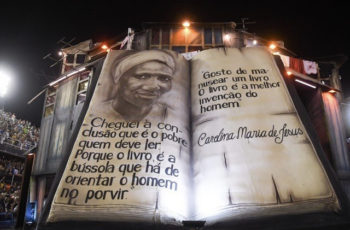 Cheguei à con-
clusão que é o pobre
quem deve ler.
Porque o livro, é a
bússola que há de
orientar o homem
no porvir."
"Gosto de ma-
nusear um livro.
O livro é a melhor
invenção do
homem"
Carolina Maria de Jesus